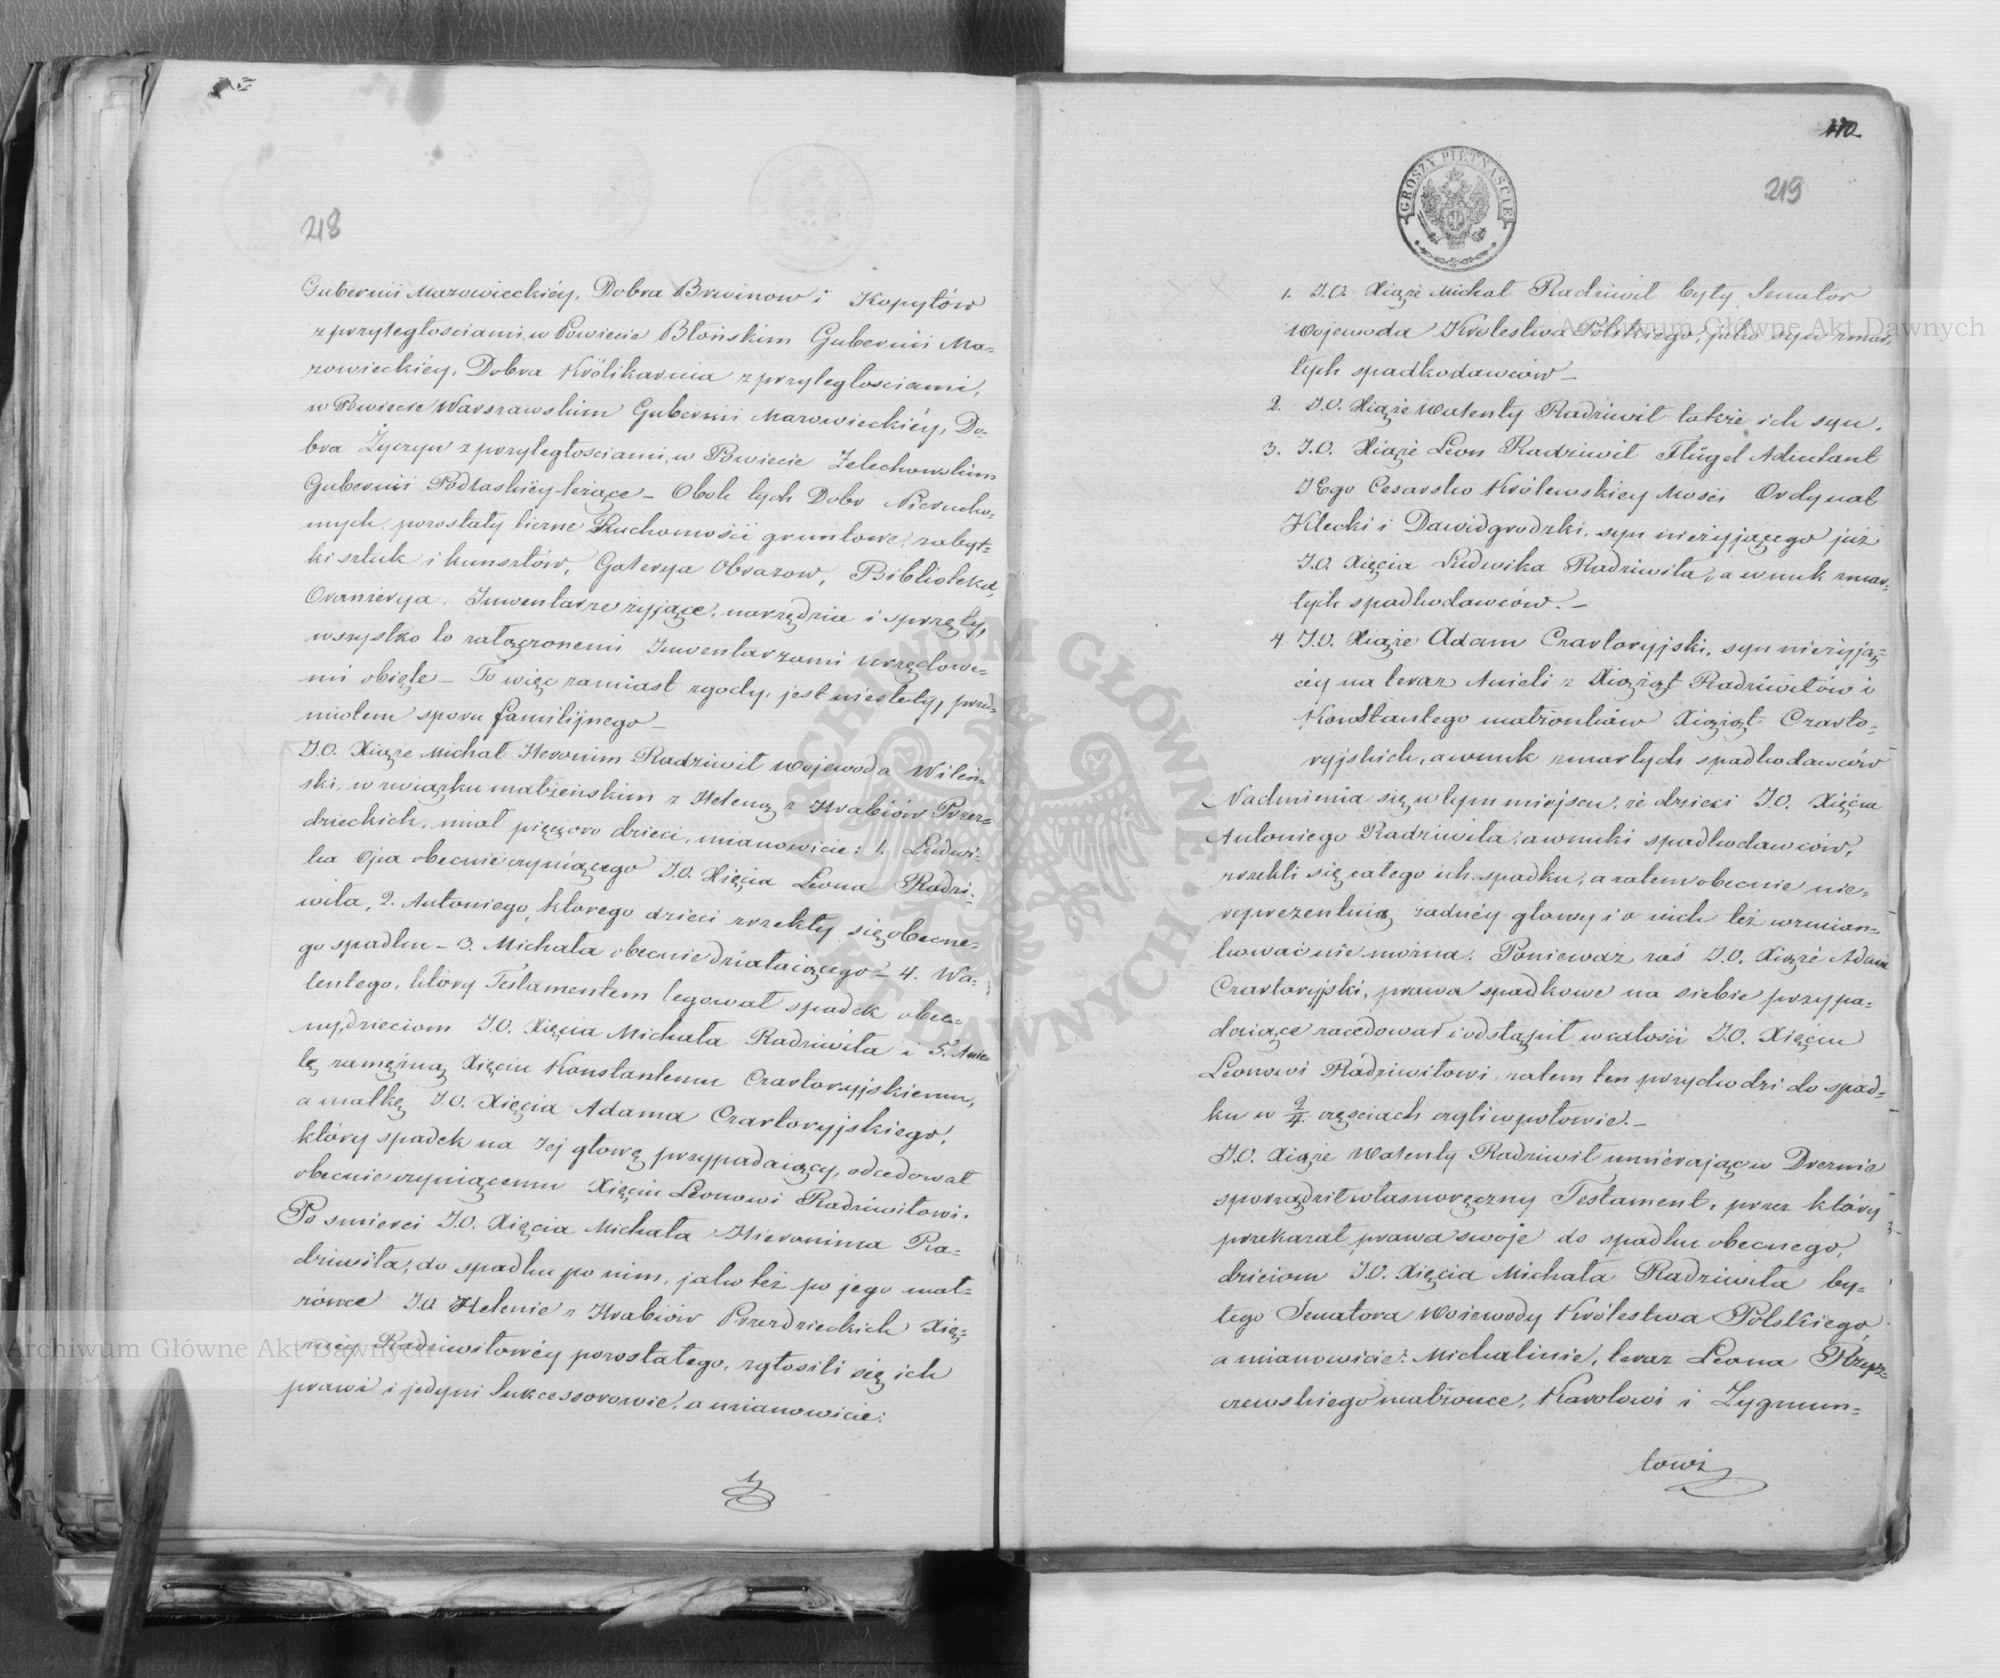 218
Gubernii Mazowieckiéy, Dobra Brwinow i Kopytów
z przyległosciami, w Powiecie Błońskim Gubernii Ma=
zowieckiéy, Dobra Królikarnia z przyległosciami,
w Powiecie Warszawskim Gubernii Mazowieckiéy, Do-
bra Życzyn z przyległosciami, w Powiecie Żelechowskim
Gubernii Podlaskiéy leżące – Obok tych Dobr Nierucho=
mych, pozostały liczne Ruchomości gruntowe, zabyt=
ki sztuk i kunsztów, Galerya Obrazow, Biblioteka,
Oranżerya, Inwentarze żyjące, narzędzia i sprzęty,
wszystko to załączonemi Inwentarzami urzędowe=
mi objęte – To więc zamiast zgody, jest niestety, przed=
miotem sporu familijnego –
J.O. Xiąże Michał Heronim Radziwił Wojewoda Wileń=
ski, w związku małżeńskim z Heleną z Hrabiów Przez=
dzieckich, miał pięcioro dzieci, mianowicie: 1. Ludwi=
ka Ojca obecnie czyniącego J.O. Xięcia Leona Radzi=
wiła, 2. Antoniego, ktorego dzieci zrzekły się obecne=
go spadku – 3. Michała obecnie działaiącego – 4. Wa=
lentego, który Testamentem legował spadek obec=
ny, dzieciom J.O. Xięcia Michała Radziwiła i 5. Anie
lę zamężną Xięciu Konstantemu Czartoryjskiemu,
a matkę J.O. Xięcia Adama Czartoryjskiego,
który spadek na Jej głowę przypadaiący, odcedował
obecnie czyniącemu Xięciu Leonowi Radziwiłowi.
Po smierci J.O. Xięcia Michała Hieronima Ra=
dziwiła, do spadku po nim, jako też po jego mał=
żonce J.O. Helenie z Hrabiów Przezdzieckich Xięż=
néy Radziwiłowéy pozostałego, zgłosili się ich
prawi i jedyni Sukcessorowie, a mianowicie:
110
219
GROSZY PIĘTNAŚCIE
1. J.O. Xiąże Michał Radziwił były Senator
Wojewoda Krolestwa Polskiego, jako syn zmar=
łych spadkodawców –
2. J.O. Xiąże Walenty Radziwił także ich syn.
3. J.O. Xiąże Leon Radziwił Flügel Adiutant
JEgo Cesarsko Królewskiey Mosci Ordynat
Klecki i Dawidgrodzki, syn nieżyjącego już
J.O. Xięcia Ludwika Radziwiła, a wnuk zmar=
łych spadkodawców. –
4. J.O. Xiąże Adam Czartoryjski, syn nieżyją=
céy na teraz Anieli z Xiążąt Radziwiłów i
Konstantego małżonków Xiążąt Czarto=
ryjskich, a wnuk zmarłych spadkodawców
Nadmienia się w tym miejscu, że dzieci J.O. Xięcia
Antoniego Radziwiła, a wnuki spadkodawców,
zrzekli się całego ich spadku, a zatem obecnie nie=
reprezentują żadnéy głowy i o nich też wzmian=
kować nie można. Ponieważ zaś J.O. Xiąże Adam
Czartoryjski, prawa spadkowe na siebie przypa=
daiące zacedował i odstąpił w całości J.O. Xięciu
Leonowi Radziwiłowi, zatem ten przychodzi do spad=
ku w 2/4 częsciach czyli w połowie. –
J.O. Xiąże Walenty Radziwił umieraiąc w Dreznie
sporządził własnoręczny Testament, przez który
przekazał prawa swoje do spadku obecnego,
dzieciom J.O. Xięcia Michała Radziwiła by=
łego Senatora Wojewody Królestwa Polskiego
a mianowicie: Michalinie, teraz Leona Rzysz=
czewskiego małżonce, Karolowi i Zygmun=
towi
Archiwum Główne Akt Dawnych
Archiwum Główne Akt Dawnych
ARCHIWUM GŁÓWNE AKT DAWNYCH